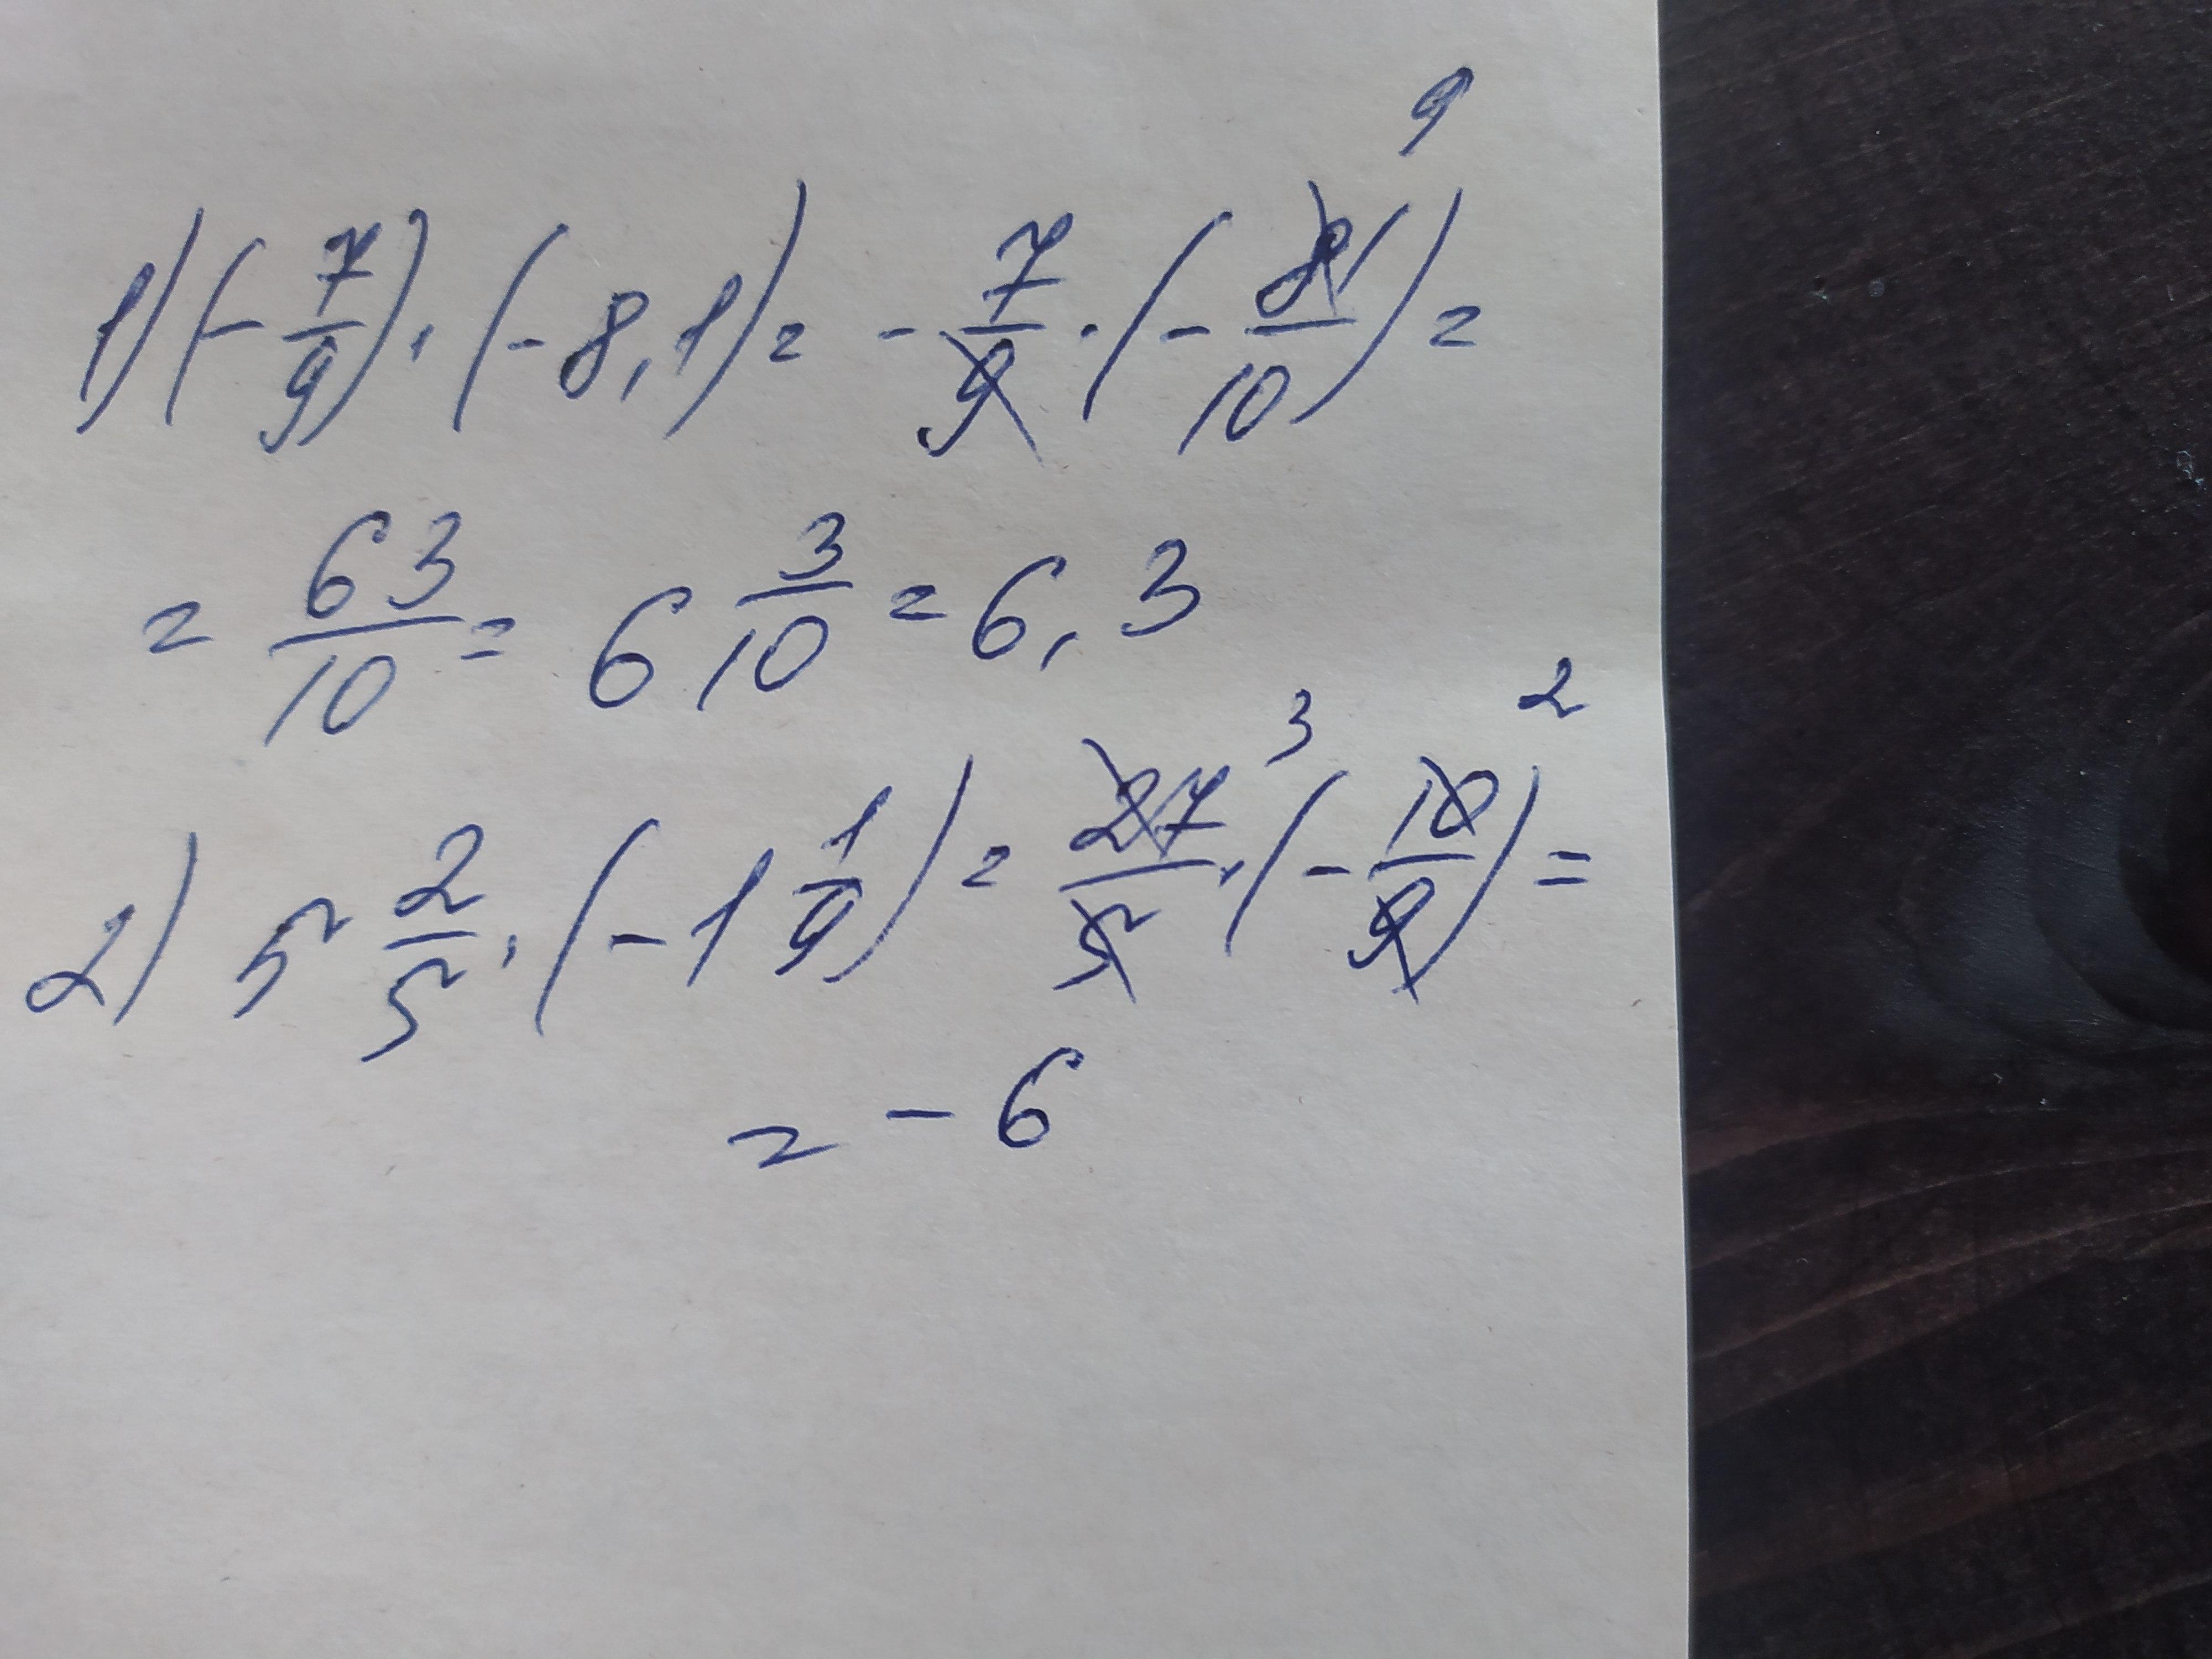 1) (- 7/9) · (- 8,1) = - 7/9 · (- 81/10) = 9
= 63/10 = 6 3/10 = 6,3
2) 5 2/5 · (- 1 1/9) = 27/5 3 · (- 10/9) 2 =
= - 6